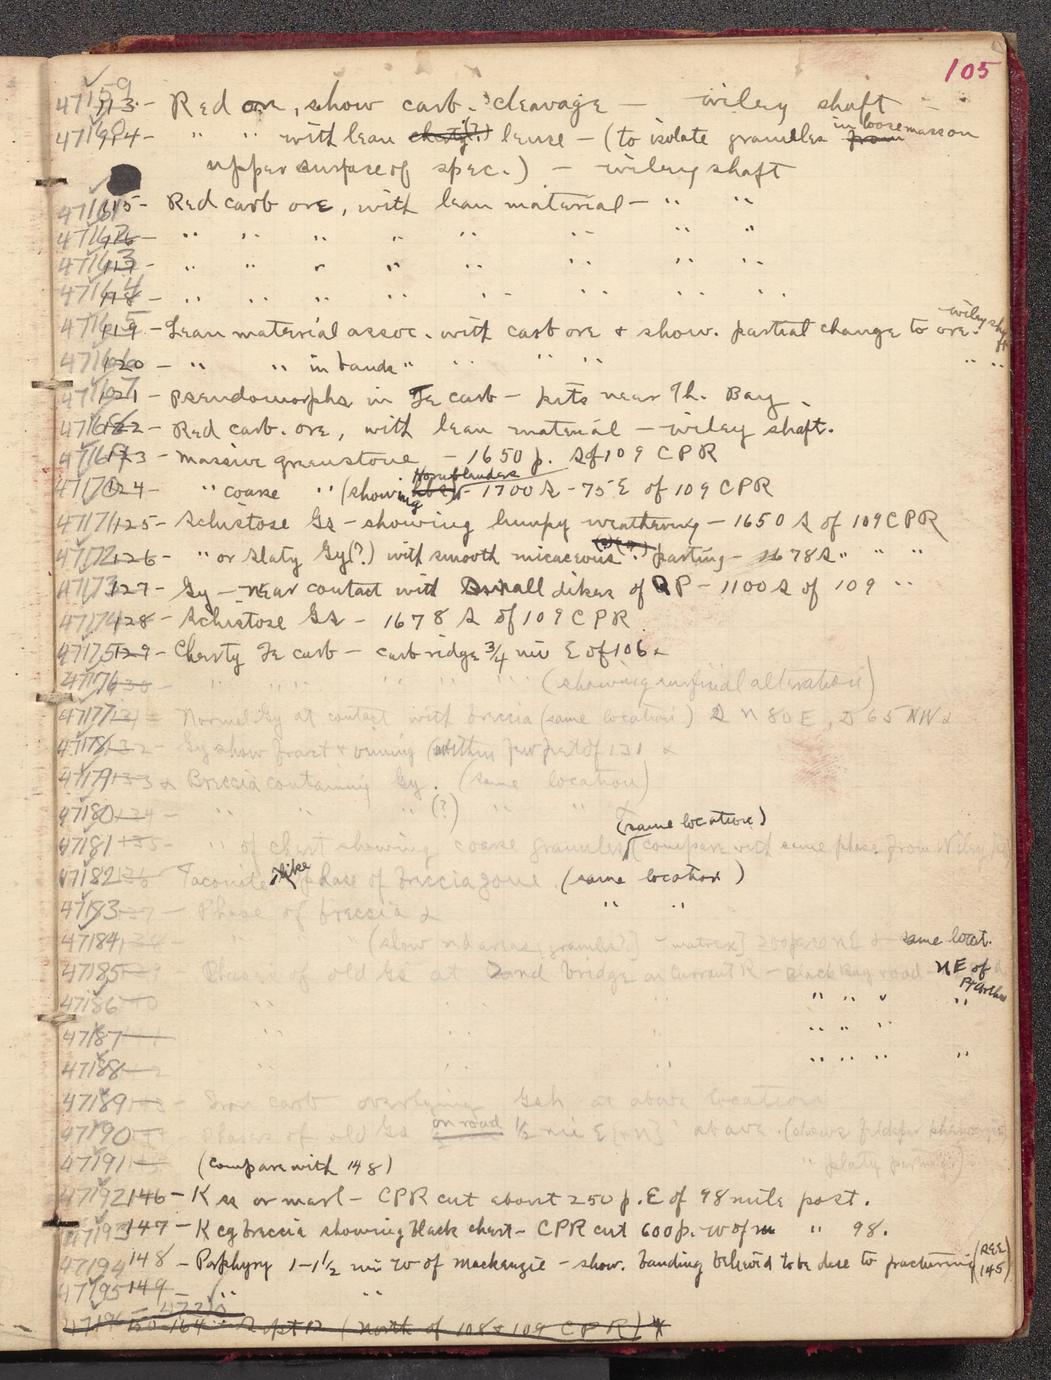 105
47159 113 - Red ore, show carb. cleavage — wiley shaft
47160 114 - " " with lean cherty(?) lense - (to isolate granules from in loose mass on
upper surface of spec.) - wiley shaft
47161 115 - Red carb ore, with lean material - " "
47162 116 - " " " " " " " "
47163 117 - " " " " " " " "
47164 118 - " " " " " " " "
47165 119 - Lean material assoc. with carb ore + show. partial change to ore. - wiley shaft
47166 120 - " " in bands " " " " " "
47167 121 - Pseudomorphs in Fe carb - pits near Th. Bay.
47168 122 - Red carb. ore, with lean material - wiley shaft.
47169 123 - Massive greenstone - 1650 p. S of 109 CPR
47170 124 - " coarse " (showing Hornblendes) - 1700 S - 75 E of 109 CPR
47171 125 - Schistose Gs - showing lumpy weathering - 1650 S of 109 CPR
47172 126 - " or slaty Gy(?) with smooth micaceous (?) parting - 1678 S " " "
47173 127 - Gy - near contact with small dikes of QP - 1100 S of 109 "
47174 128 - Schistose Gs - 1678 S of 109 CPR
47175 129 - Cherty Fe carb - carb ridge 3/4 mi E of 106
47176 130 - " " " " " (showing surficial alteration)
47177 131 - Normal Gy at contact with breccia (same location) S N 80 E, D 65 NW
47178 132 - Gy show fract + veining (within few feet of 131
47179 133 Breccia containing Gy. (same location)
47180 134 - " " " (?) " "
47181 135 - " of chert showing coarse granules (same location) (compare with same phase from Wiley
47182 136 Taconite like phase of breccia zone. (same location)
47183 137 - Phase of breccia " "
47184 138 - " " " (show same locat.
47185 139 - Phases of old Gs at 2nd bridge on Current R - Black Bay road NE of Pt Arthur
47186 " " " " " " "
47187 " " " " " "
47188 " " " " " "
47189 - Iron carb overlying Gsh at above locations
47190 - Phases of old Gs on road 1/2 mi E above. (shows
47191 - (compare with 148) " platy parting)
47192 146 - K ss or marl - CPR cut about 250 p. E of 98 mile post.
47193 147 - K cg breccia showing black chert - CPR cut 600 p. W of m " 98.
47194 148 - Porphyry 1-1½ mi W of Mackenzie - show. banding believed to be due to fracturing (see 145)
47195 149 - " "
47196 150-164 - 47210 Sept 12 (North of 108 & 109 CPR)